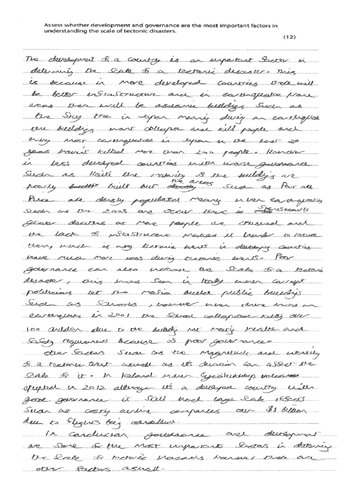 Assess whether development and governance are the most important factors in
understanding the scale of tectonic disasters.
(12)
The development of a country is an important factor in
determining the scale to a tectonic disaster. This
is because in more developed countries there will
be better infrastructure and in earthquake prone
areas there will be aseismic buildings such as
the Sky tree in Japan meaning during an earthquake
the buildings wont collapse and kill people and
why most earthquakes in Japan in the last
years havent killed more than 200 people. However
in less developed countries with worse governance
such as Haiti the majority of the buildings are
poorly built but the areas such as Port au
Prince are densely populated meaning when earthquakes
such as the there is
greater deaths as more people are and
the lack of infrastructure makes it harder to
them, which is why tectonic events in developing countries
have much more during tectonic events. Poor
governance can also increase the scale of a tectonic
disaster, this was seen in Italy when corrupt
politicians let the mafia build public buildings
such as schools, however when there was an
earthquake in 2001 the school collapsed killing over
100 children due to the building not meeting health and
safety requirements because of poor governance.
Other factors such as the magnitude and intensity
of a tectonic event aswell as its duration can affect the
scale of it. In Iceland when
erupted in 2012 although its a developed country with
good governance it still had large scale effects
such as costing airline companies over
due to flights being cancelled.
In conclusion governance and development
are some of the most important factors in determing
the scale to tectonic hazards however there are
other factors aswell.